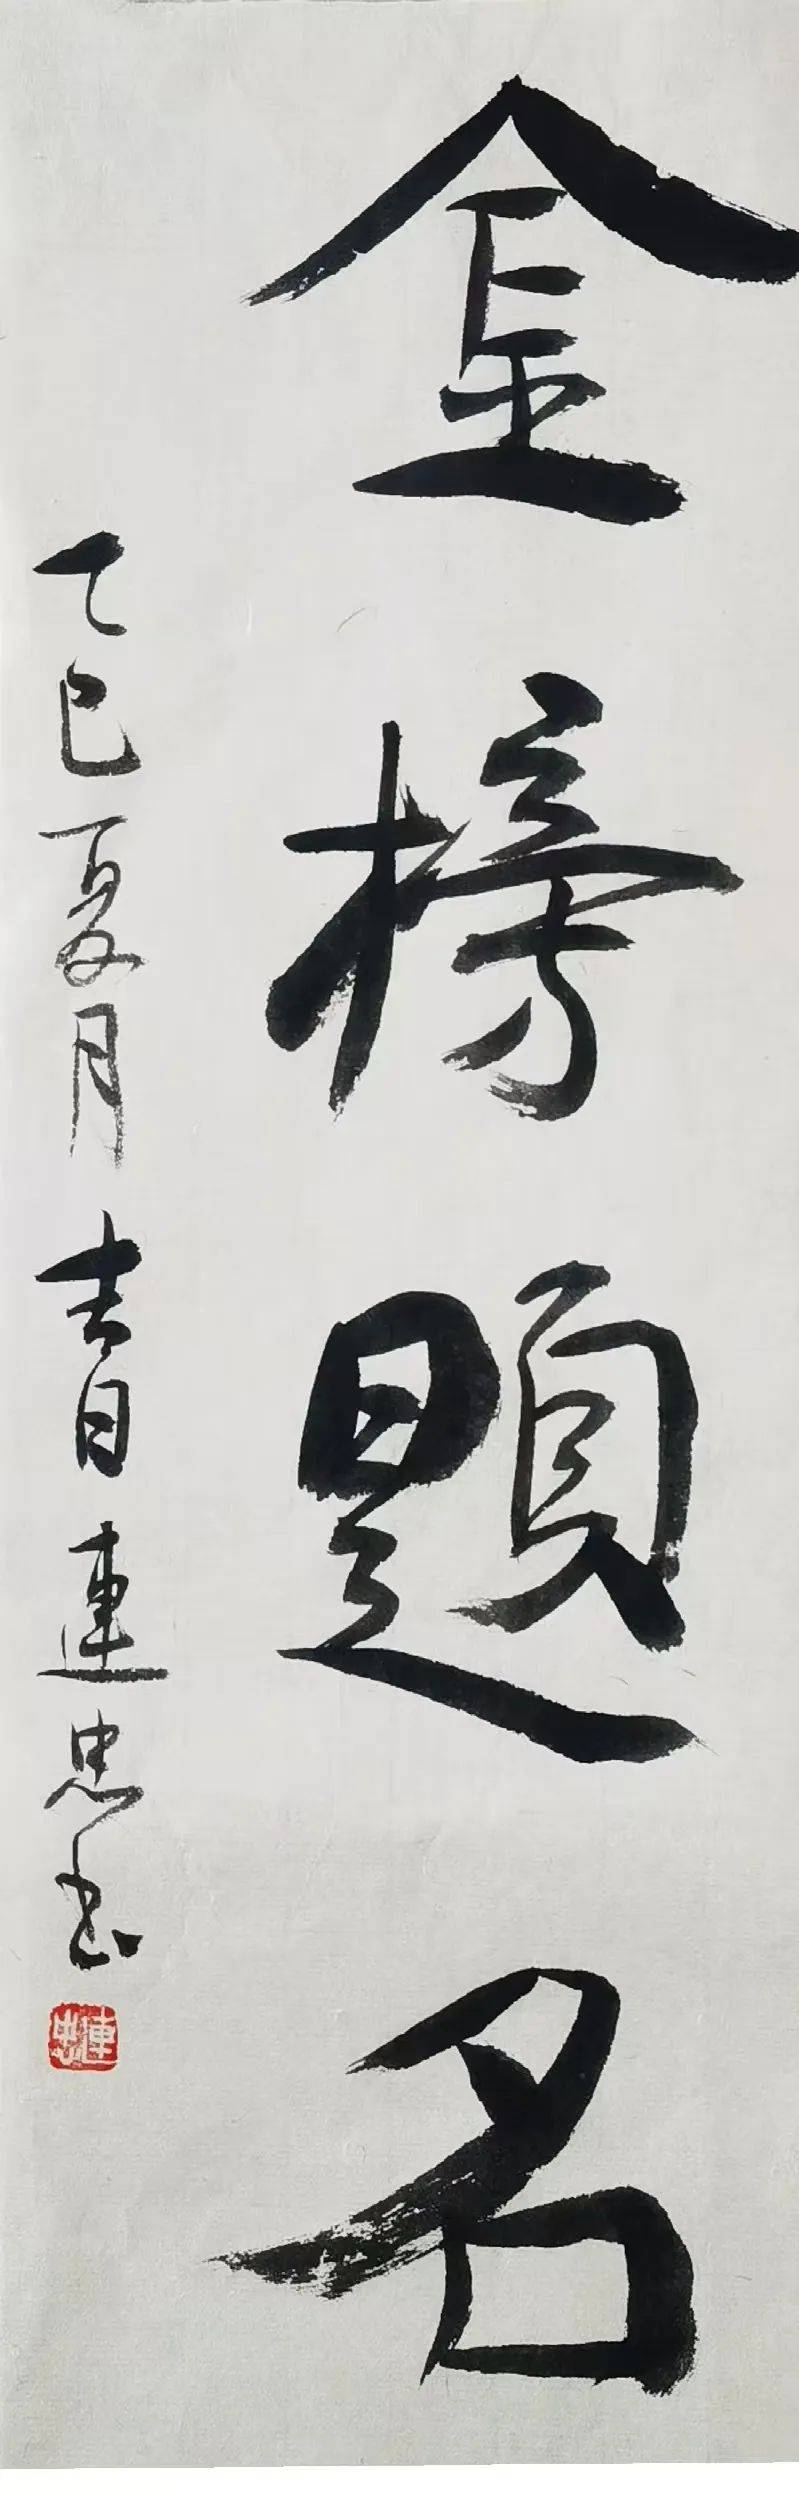 金榜題名
乙巳夏月吉日連忠书
連忠